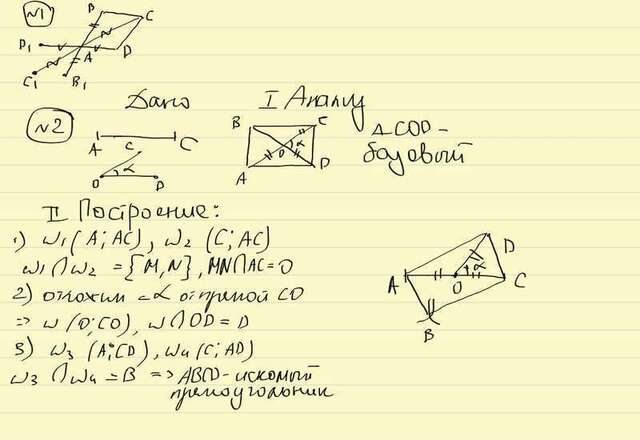 №1
B
C
D₁
A
D
C₁
B₁
№2
Дано
I Анализ
A
C
C
O
D
α
B
C
A
D
O
α
△COD -
базовый
II Построение:
1) ω₁(A; AC), ω₂(C; AC)
ω₁∩ω₂ = {M,N}, MN∩AC=O
2) отложим =α от прямой CO
=> ω(O;CO), ω∩OD = D
3) ω₃(A;CD), ω₄(C;AD)
ω₃∩ω₄ = B => ABCD - искомый
прямоугольник
A
O
α
D
C
B